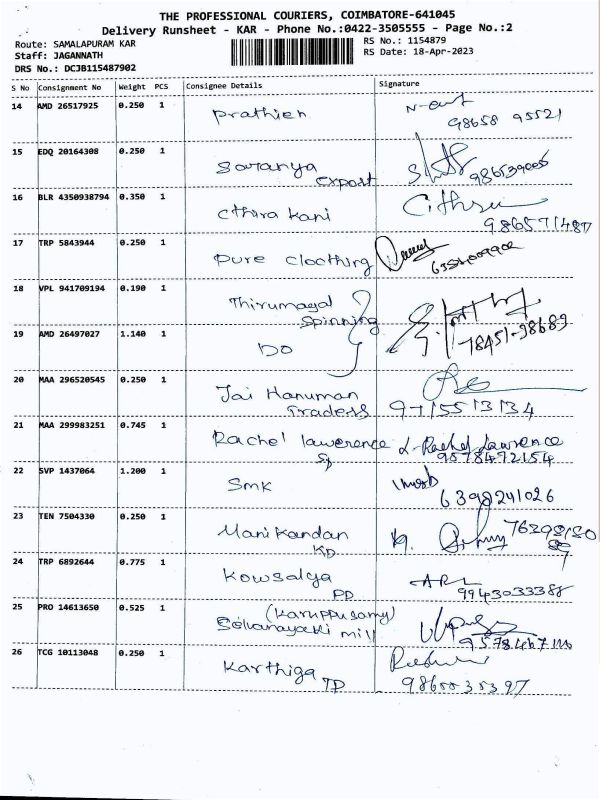 THE PROFESSIONAL COURIERS, COIMBATORE-641045
Delivery Runsheet - KAR - Phone No.:0422-3505555 - Page No.:2
Route: SAMALAPURAM KAR
RS No.: 1154879
Staff: JAGANNATH
RS Date: 18-Apr-2023
DRS No.: DCJB115487902
S No Consignment No Weight PCS Consignee Details Signature
14 AMD 26517925 0.250 1 Prathien
98658 95521
15 EDQ 20164308 0.250 1 Saranya
export
16 BLR 4350938794 0.350 1 Cthira Kani
9865771487
17 TRP 5843944 0.250 1 Pure Cloothing
18 VPL 941709194 0.190 1 Thirumagal
Spinning
19 AMD 26497027 1.140 1 DO
78451-98689
20 MAA 296520545 0.250 1 Jai Hanuman
Traders 9715513134
21 MAA 299983251 0.745 1 Rachel lawerence L. Rachel Lawrence
9578472154
22 SVP 1437064 1.200 1 SMK
6398241026
23 TEN 7504330 0.250 1 Manikandan
KD
24 TRP 6892644 0.775 1 Kowsalya
PD 9943033388
25 PRO 14613650 0.525 1 (Karuppusamy)
mill
26 TCG 10113048 0.250 1 Karthiga
TD